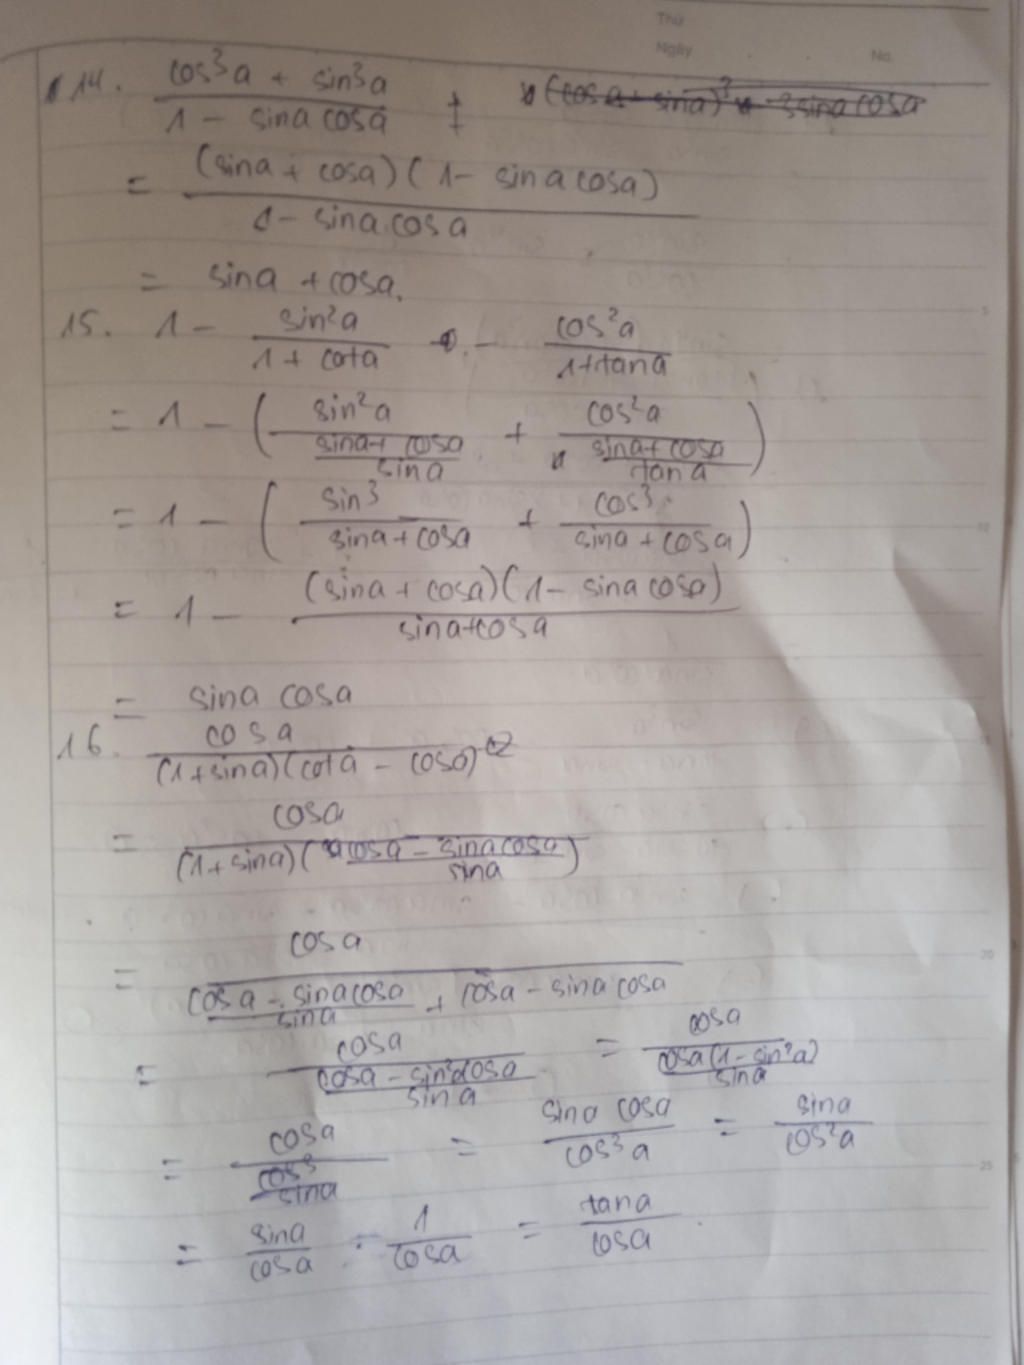 Thứ
Ngày No.
14. (cos³a + sin³a)/(1 - sina cosa)
= (sina + cosa)(1 - sina cosa)/(1 - sina cosa)
= sina + cosa.
15. 1 - sin²a/(1 + cota) - cos²a/(1+tana)
= 1 - (sin²a/((sina+cosa)/sina) + cos²a/((sina+cosa)/tana))
= 1 - (sin³/(sina+cosa) + cos³/(sina+cosa))
= 1 - (sina + cosa)(1 - sina cosa)/(sina+cosa)
= sina cosa
16. cosa/((1+sina)(cota - cosa))
= cosa/((1+sina)((cosa - sinacosa)/sina))
= cosa/((cosa - sinacosa)/sina + cosa - sina cosa)
= cosa/((cosa - sin²acosa)/sina) = cosa/((cosa(1-sin²a))/sina)
= cosa/(cos³/sina) = sina cosa/cos³a = sina/cos²a
= sina/cosa · 1/cosa = tana/cosa
5
10
15
20
25